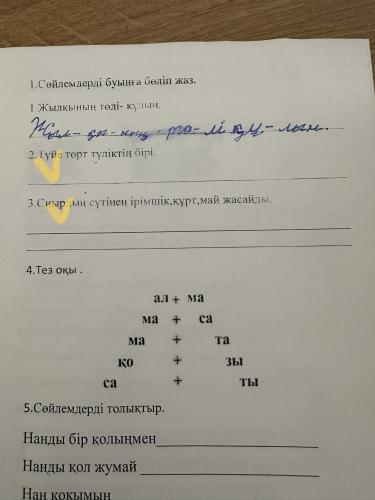 1.Сөйлемдерді буынға бөліп жаз.
1.Жылқының төлі- құлын.
Жыл- қы- ның тө- лі құ- лын.
2.Түйе төрт түліктің бірі.
3.Сиырдың сүтінен ірімшік,құрт,май жасайды.
4.Тез оқы .
ал + ма
ма + са
ма + та
қо + зы
са + ты
5.Сөйлемдерді толықтыр.
Нанды бір қолыңмен
Нанды қол жумай
Нан қоқымын